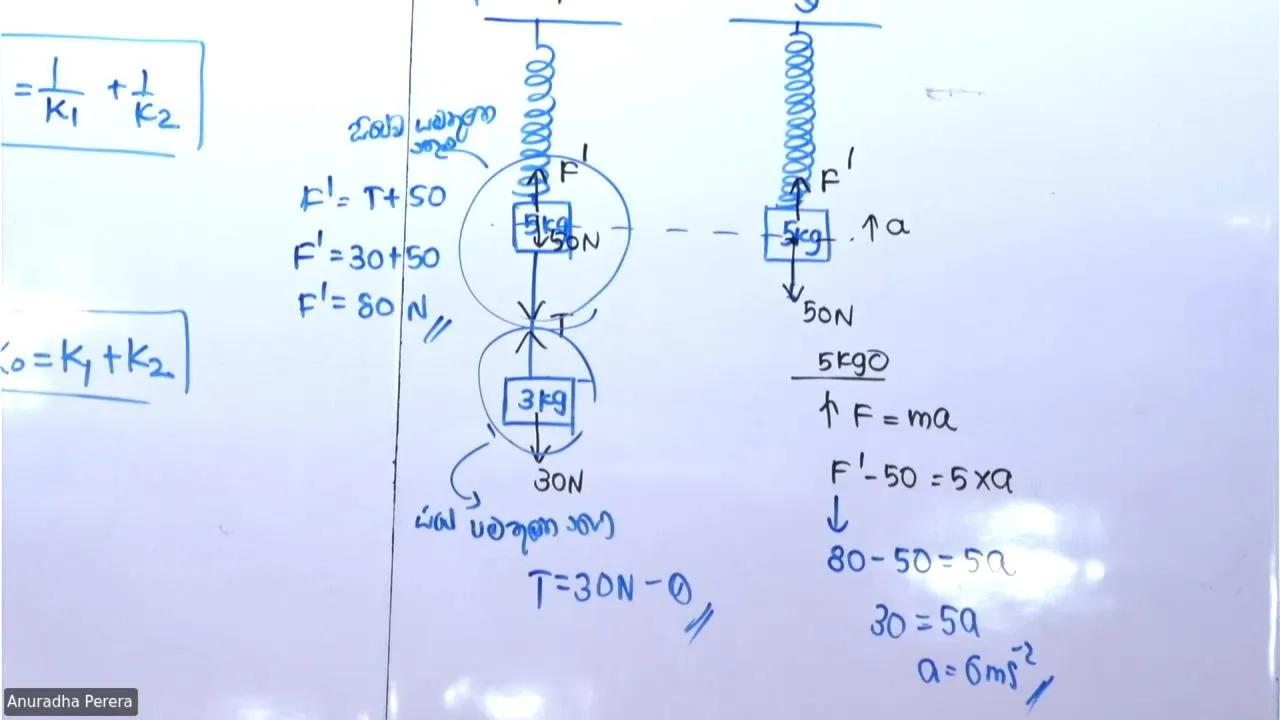 = 1/K₁ + 1/K₂
K₀ = K₁ + K₂
F' = T + 50
F' = 30 + 50
F' = 80 N
F'
5kg
50N
T
3kg
30N
T = 30N - ①
F'
5kg
↑ a
50N
5kgට
↑ F = ma
F' - 50 = 5 × a
↓
80 - 50 = 5a
30 = 5a
a = 6ms⁻²
Anuradha Perera